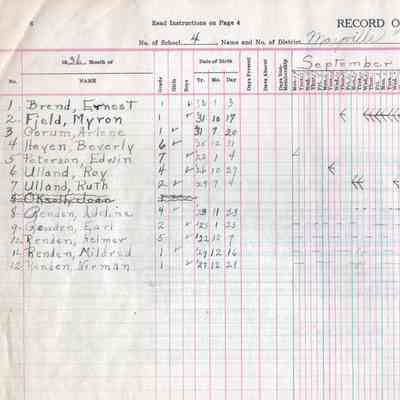 6 Read Instructions on Page 4 RECORD O
No. of School 4, Name and No. of District Mayville
1936 Month of Date of Birth September
No. NAME Grade Girls Boys Yr. Mo. Day Days Present Days Absent Days Non-Membership
1 Brend, Ernest 1 1 3
2 Field, Myron 1 31 10 17
3 Gorum, Arlene 1 31 9 20
4 Hayen, Beverly 6 25 12 31
5 Peterson, Edwin 7 1 4
6 Ulland, Roy 4 26 10 27
7 Ulland, Ruth 2 29 7 4
8 Renden, Adeline 4 23
9 Earl 2 1 23
10 Renden, Helmer 5 10 9
11 Renden, Mildred 1 12 16
12 Renden, Norman 1 12 28